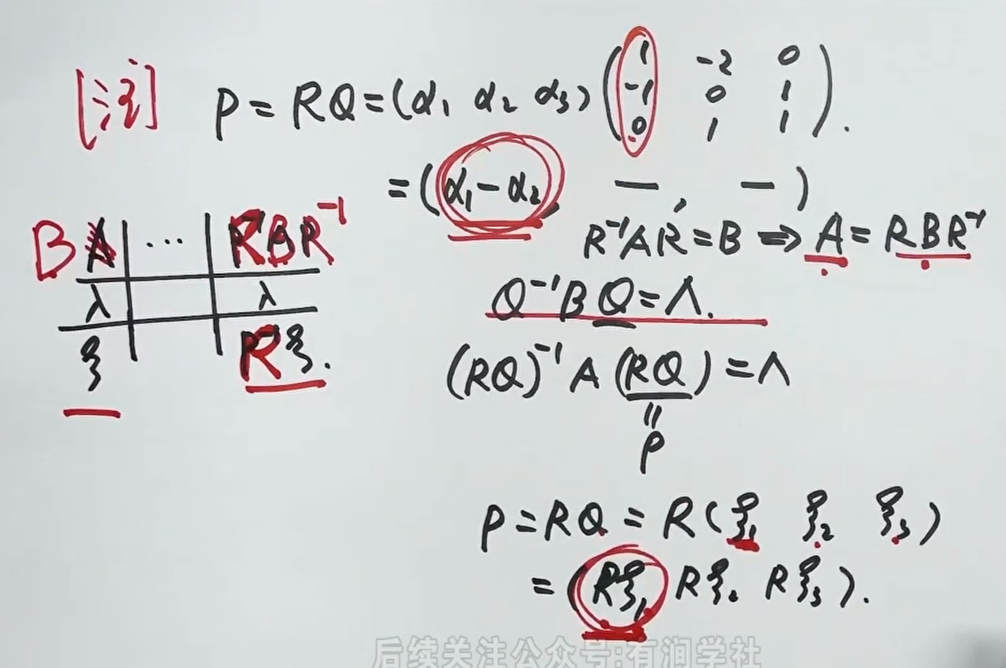 [注] P = RQ = (α₁ α₂ α₃) ( 1 -2 0
-1 0 1
0 1 1 ).
= (α₁ - α₂, —, —)
R⁻¹AR = B ⇒ A = RBR⁻¹
B ... RBR⁻¹
λ λ
ξ Rξ.
Q⁻¹BQ = Λ.
(RQ)⁻¹ A (RQ) = Λ
=
P
P = RQ = R(ξ₁ ξ₂ ξ₃)
= (Rξ₁ Rξ₂ Rξ₃).
后续关注公众号:有润学社